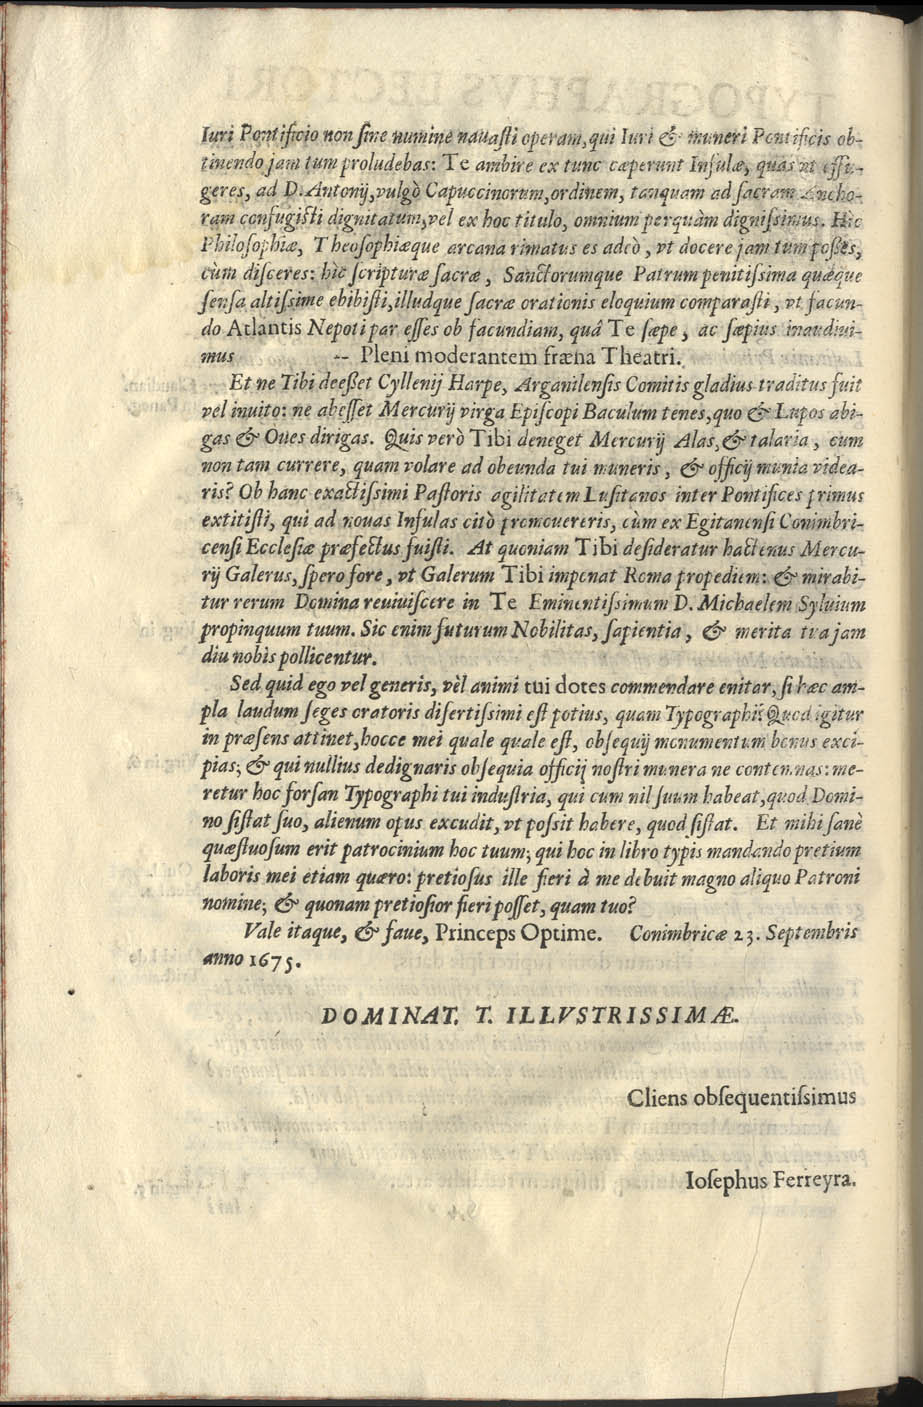 Iuri Pontificio non ſine numine nauaſti operam, qui Iuri & muneri Pontificis ob-
tinendo jam tum proludebas: Te ambire ex tunc cæperunt Inſulæ, quas ut effu-
geres, ad D. Antonij, vulgò Capuccinorum, ordinem, tanquam ad ſacram Ancho-
ram confugiſti dignitatum, vel ex hoc titulo, omnium perquàm digniſsimus. Hic
Philoſophiæ, Theoſophiæque arcana rimatus es adeò, vt docere jam tum poßes,
cùm diſceres: hic ſcripturæ ſacræ, Sanctorumque Patrum penitiſsima quæque
ſenſa altiſsime ebibiſti, illudque ſacræ orationis eloquium comparaſti, vt facun-
do Atlantis Nepoti par eſſes ob facundiam, quâ Te ſæpe, ac ſæpius inaudiui-
mus -- Pleni moderantem fræna Theatri.
Et ne Tibi deeßet Cyllenij Harpe, Arganilenſis Comitis gladius traditus fuit
vel inuito: ne abeſſet Mercurij virga Epiſcopi Baculum tenes, quo & Lupos abi-
gas & Oues dirigas. Quis verò Tibi deneget Mercurij Alas, & talaria, cum
non tam currere, quam volare ad obeunda tui muneris, & officij munia videa-
ris? Ob hanc exactiſsimi Paſtoris agilitatem Luſitanos inter Pontifices primus
extitiſti, qui ad nouas Inſulas citò promouereris, cùm ex Egitanenſi Conimbri-
cenſi Eccleſiæ præfectus fuiſti. At quoniam Tibi deſideratur hactenus Mercu-
rij Galerus, ſpero fore, vt Galerum Tibi imponat Roma propediem: & mirabi-
tur rerum Domina reuiuiſcere in Te Eminentiſsimum D. Michaelem Syluium
propinquum tuum. Sic enim futurum Nobilitas, ſapientia, & merita tua jam
diu nobis pollicentur.
Sed quid ego vel generis, vèl animi tui dotes commendare enitar, ſi hæc am-
pla laudum ſeges oratoris diſertiſsimi eſt potius, quam Typographi? Quod igitur
in præſens attinet, hocce mei quale quale eſt, obſequij monumentum bonus exci-
pias; & qui nullius dedignaris obſequia officij noſtri munera ne contemnas: me-
retur hoc forſan Typographi tui induſtria, qui cum nil ſuum habeat, quod Domi-
no ſiſtat ſuo, alienum opus excudit, vt poſsit habere, quod ſiſtat. Et mihi ſanè
quæſtuoſum erit patrocinium hoc tuum; qui hoc in libro typis mandando pretium
laboris mei etiam quæro: pretioſus ille fieri à me debuit magno aliquo Patroni
nomine; & quonam pretioſior fieri poſſet, quam tuo?
Vale itaque, & faue, Princeps Optime. Conimbricæ 23. Septembris
anno 1675.
DOMINAT. T. ILLVSTRISSIMÆ.
Cliens obſequentiſsimus
Ioſephus Ferreyra.